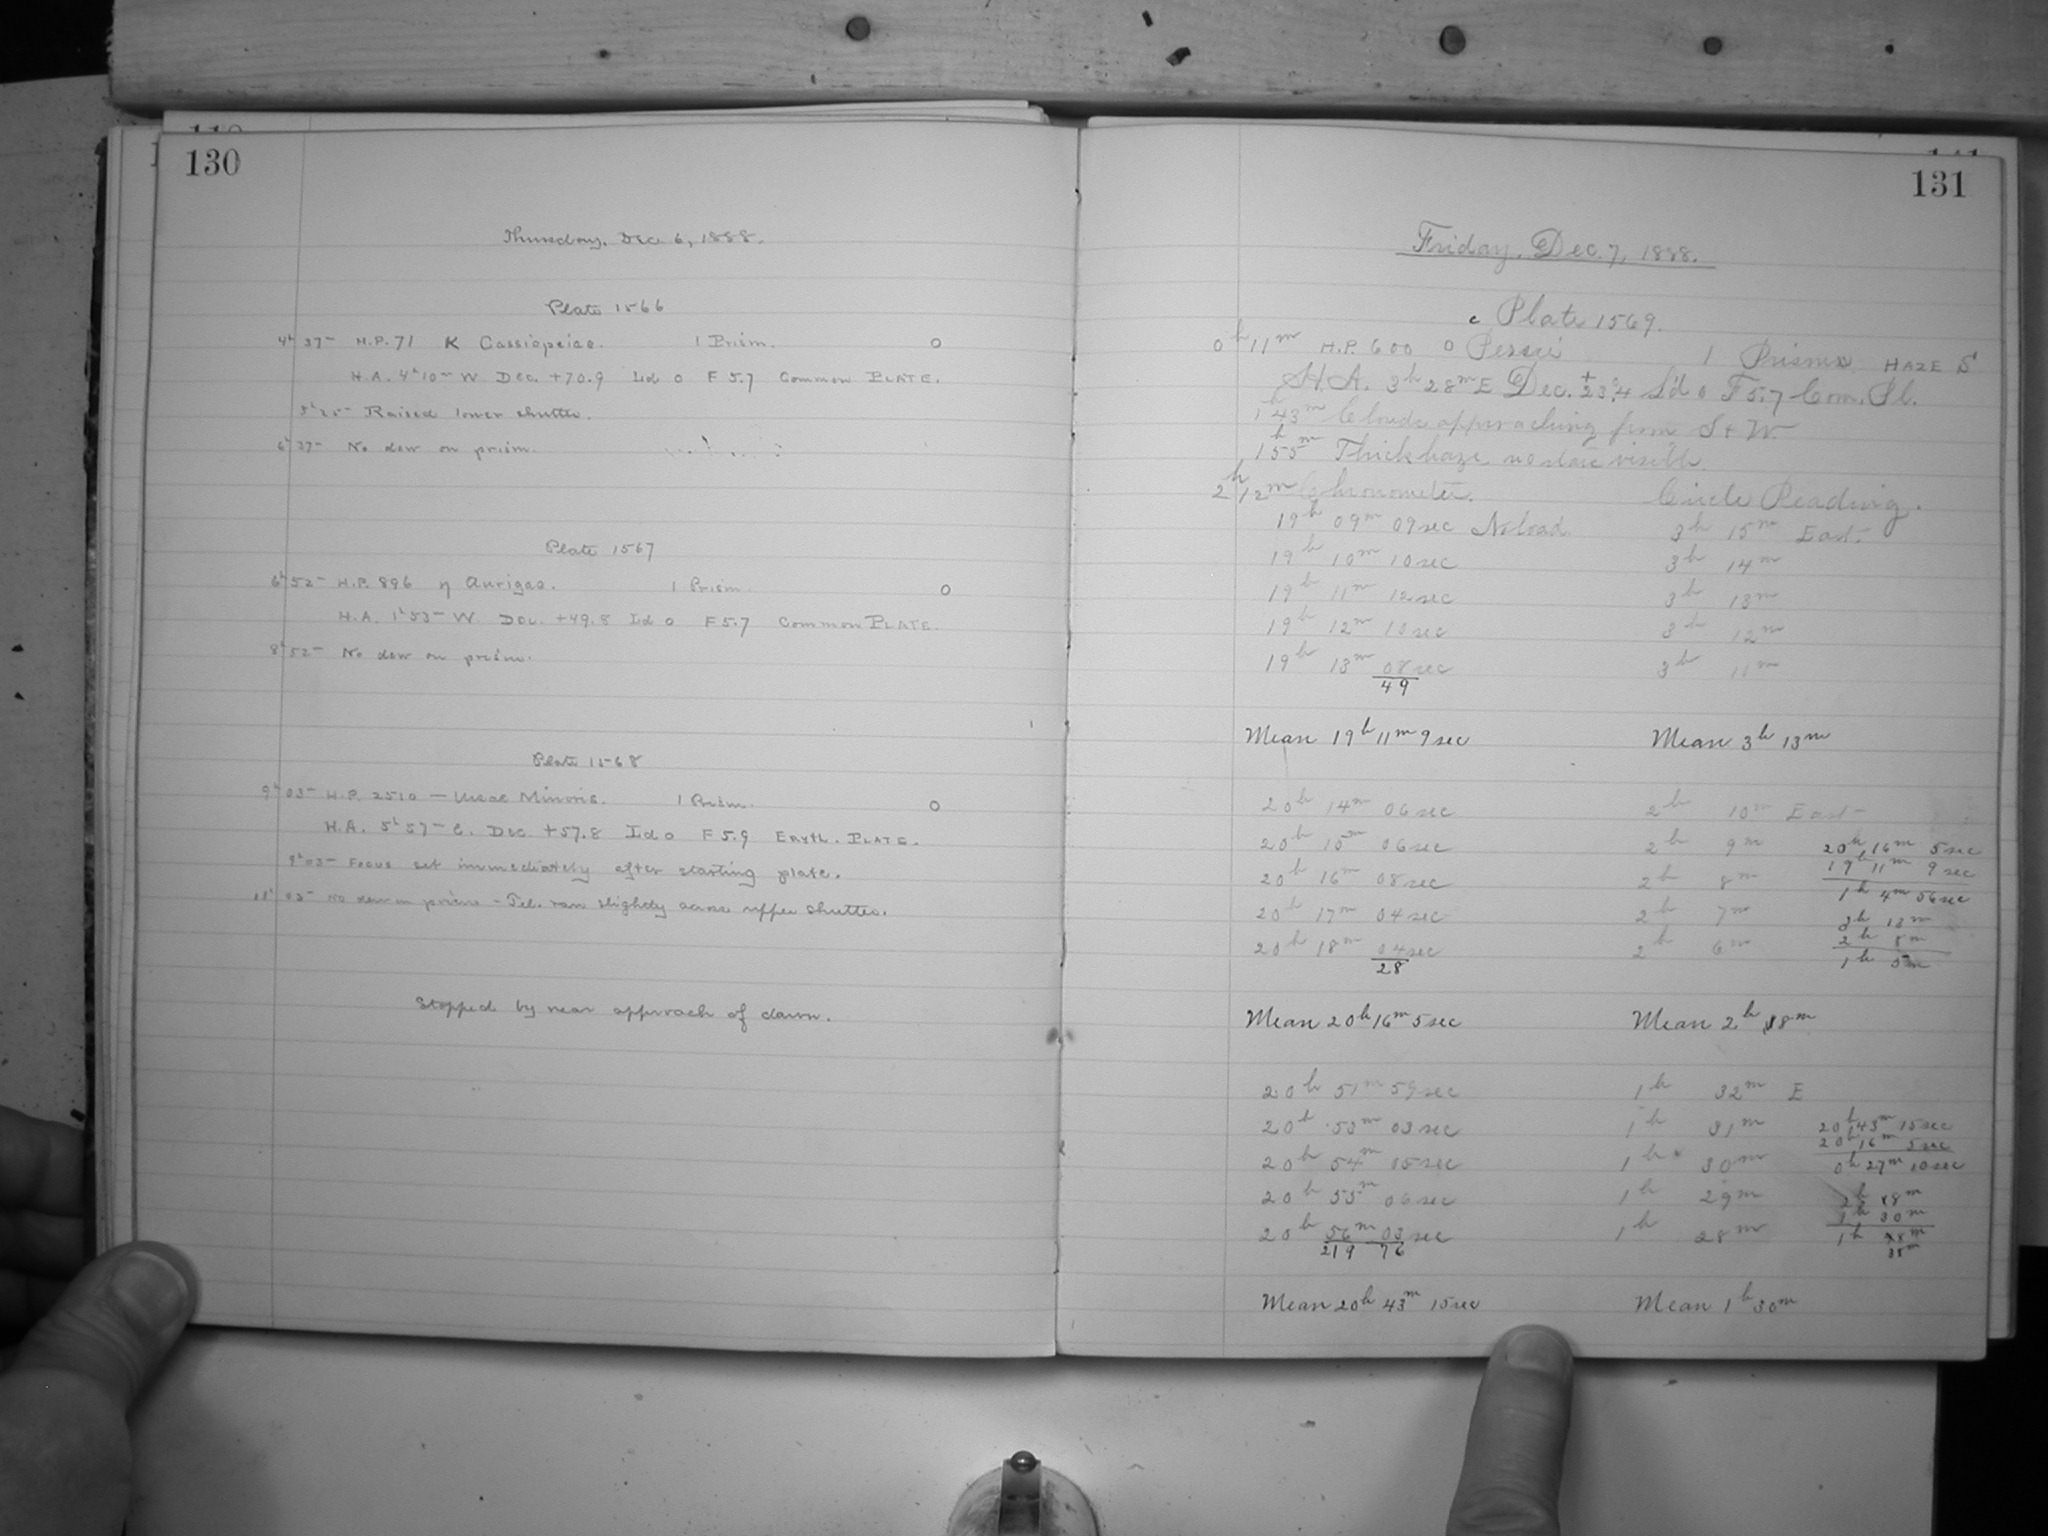 130
Thursday, Dec 6, 1888.
Plate 1566
4h 37m H.P. 71 K Cassiopeiae. 1 Prism. 0
H.A. 4h 10m W Dec. +70.9 Id 0 F 5.7 Common PLATE.
5h 25m Raised lower shutter.
6h 37m No dew on prism.
Plate 1567
6h 52m H.P. 896 η Aurigae. 1 Prism. 0
H.A. 1h 53m W Dec. +49.8 Id 0 F 5.7 Common PLATE.
8h 52m No dew on prism.
Plate 1568
9h 03m H.P. 2510 — Ursae Minoris. 1 Prism. 0
H.A. 5h 57m E. Dec +57.8 Id 0 F 5.9 ERYTH. PLATE.
9h 03m Focus set immediately after starting plate.
11h 03m No dew on prism - Tel. ran slightly across upper shutter.
Stopped by near approach of dawn.
131
Friday, Dec. 7, 1888.
c Plate 1569.
0h 11m H.P. 600 o Persei 1 Prism HAZE S
H.A. 3h 28m E Dec. +23.4 Id 0 F 5.7 Com. Pl.
1h 43m Clouds approaching from S + W.
1h 55m Thick haze no stars visible.
2h 12m Chronometer. Circle Reading.
19h 09m 09sec No load 3h 15m East.
19h 10m 10sec 3h 14m
19h 11m 12sec 3h 13m
19h 12m 10sec 3h 12m
19h 13m 08sec 3h 11m
49
Mean 19h 11m 9sec Mean 3h 13m
20h 14m 06sec 2h 10m East
20h 15m 06sec 2h 9m 20h 16m 5sec
19h 11m 9sec
20h 16m 08sec 2h 8m 1h 4m 56sec
20h 17m 04sec 2h 7m 3h 13m
20h 18m 04sec 2h 6m 2h 8m
28 1h 5m
Mean 20h 16m 5sec Mean 2h 8m
20h 51m 59sec 1h 32m E
20h 53m 03sec 1h 31m 20h 43m 15sec
20h 16m 5sec
20h 54m 05sec 1h 30m 0h 27m 10sec
20h 55m 06sec 1h 29m 2h 8m
1h 30m
20h 56m 03sec 1h 28m 1h 8m
219 76 38m
Mean 20h 43m 15sec Mean 1h 30m